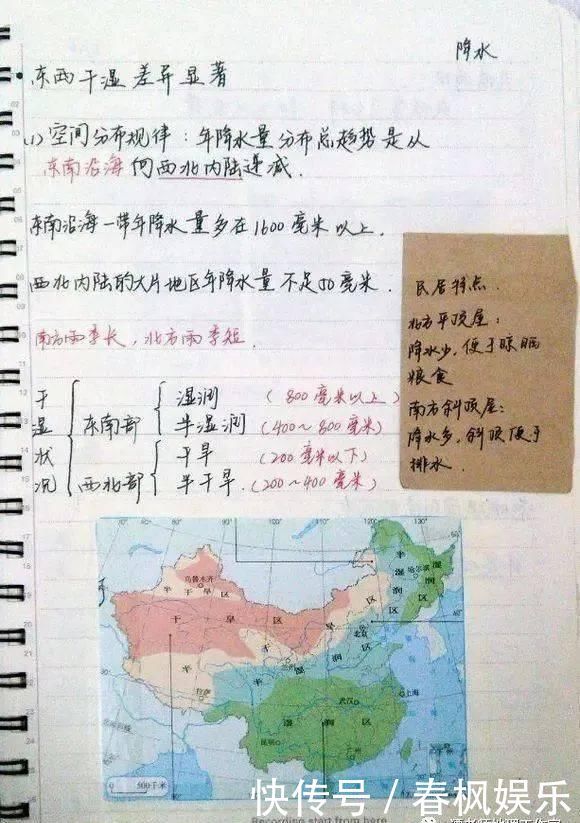 降水
东西干湿差异显著
(1)空间分布规律:年降水量分布总趋势是从
东南沿海向西北内陆递减.
东南沿海一带年降水量多在1600毫米以上.
西北内陆的大片地区年降水量不足50毫米.
南方雨季长,北方雨季短.
干湿状况
东南部
湿润 (800毫米以上)
半湿润 (400~800毫米)
西北部
干旱 (200毫米以下)
半干旱 (200~400毫米)
民居特点.
北方平顶屋:
降水少,便于晾晒
粮食
南方斜顶屋:
降水多,斜顶便于
排水.
乌鲁木齐
哈尔滨
北京
拉萨
武汉
上海
昆明
广州
半干旱区
干旱区
半干旱区
半湿润区
湿润区
半湿润区
湿润区
500千米
快传号/春枫娱乐
Recording start from here